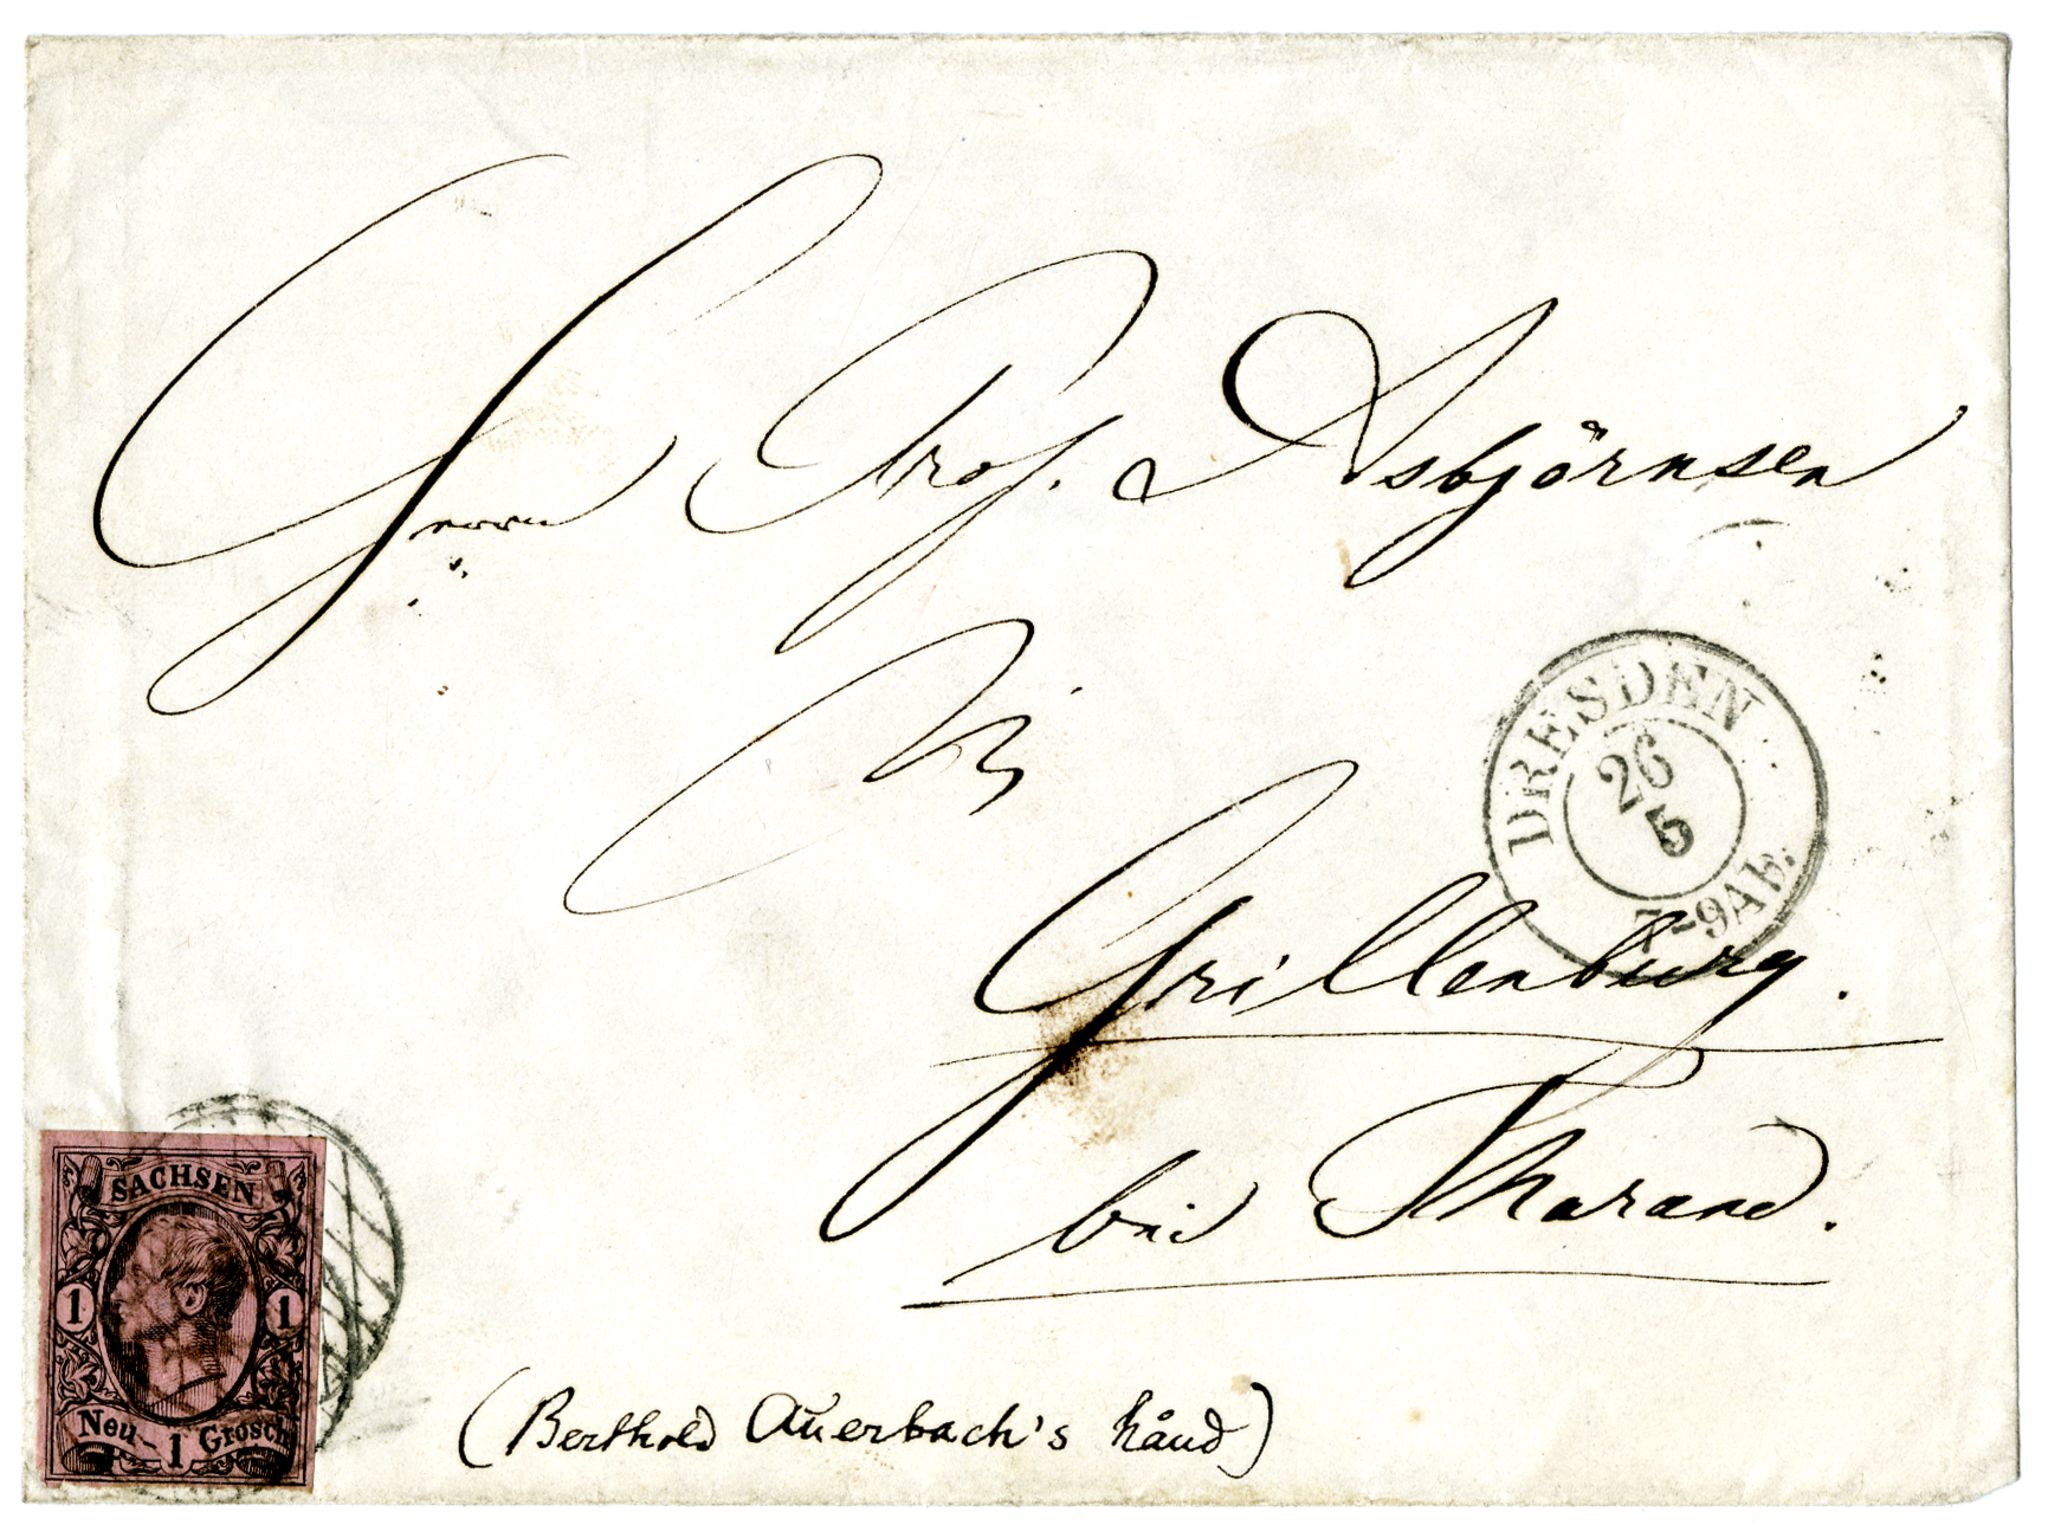 Herrn Prof. Asbjörnsen
in
DRESDEN
26
5
7-9 Ab.
Grillenburg.
bei Tharand.
SACHSEN
1 1
Neu- 1 Grosch
(Berthold Auerbach's hånd)